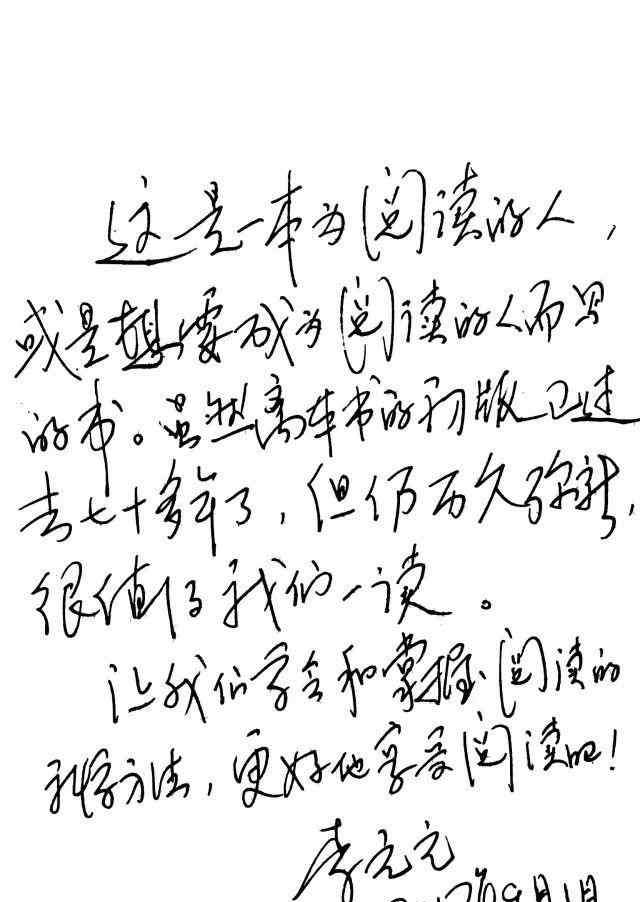 这是一本为阅读的人，
或是想要成为阅读的人而写
的书。虽然离本书的初版已过
去七十多年了，但仍历久弥新，
很值得我们一读。
让我们学会和掌握阅读的
科学方法，更好地享受阅读吧！
李元元